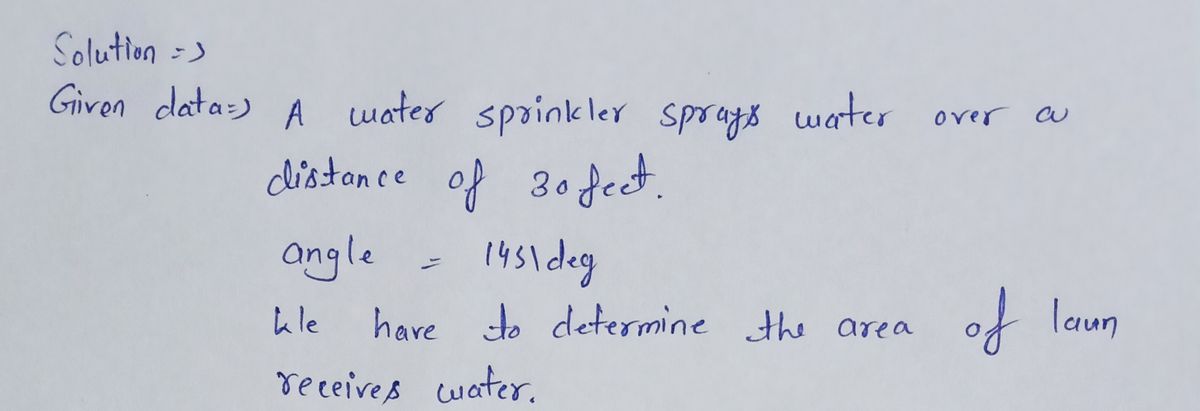 Solution =>
Given data=> A water sprinkler sprays water over a
distance of 30 feet.
angle = 145\deg
We have to determine the area of laun
receives water.